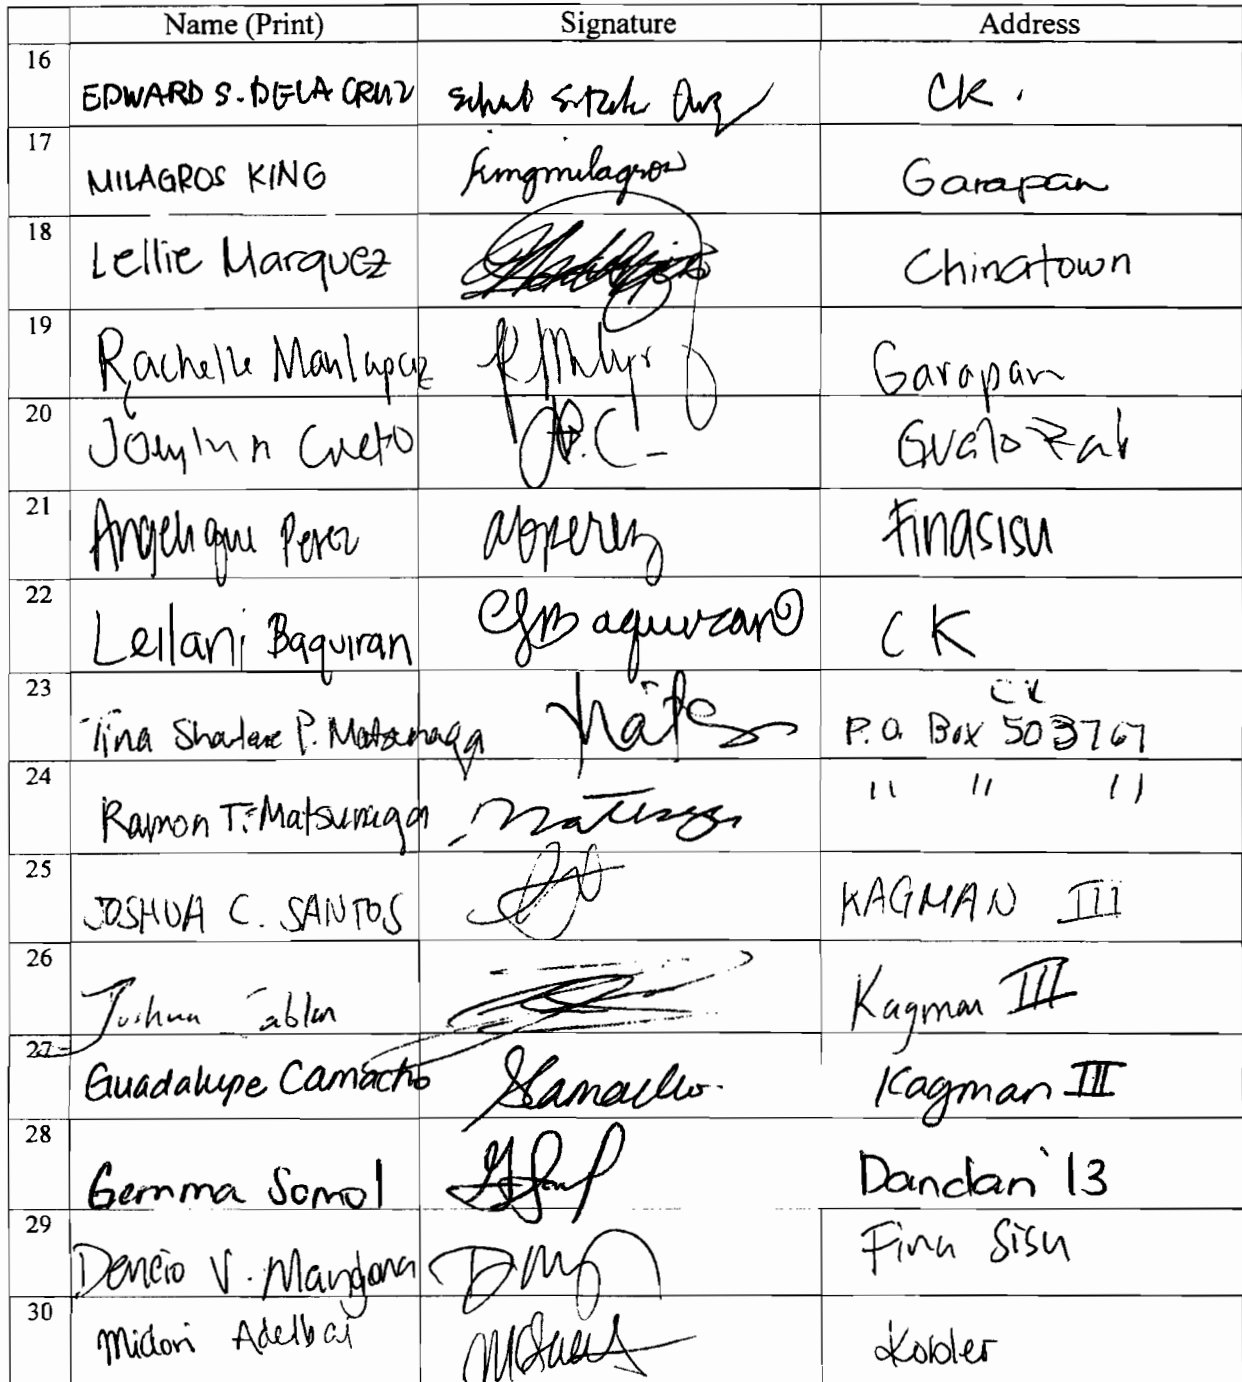 Name (Print) Signature Address
16 EDWARD S. DELA CRUZ CK.
17 MILAGROS KING kingmilagros Garapan
18 Lellie Marquez Chinatown
19 Rachelle Manlapaz Garapan
20 Joeylynn Cueto J.P.C- Gualo Rai
21 Angelique Perez abperez Finasisu
22 Leilani Baquiran Baquiran CK
23 Tina Sharlene P. Matsunaga CK
P.O. Box 503767
24 Ramon T. Matsunaga " " "
25 JOSHUA C. SANTOS KAGMAN III
26 Joshua Kagman III
27 Guadalupe Camacho GCamacho Kagman III
28 Gemma Somol Dandan 13
29 Dencio V. Mangona Fina Sisu
30 Midori Adelbai Kobler